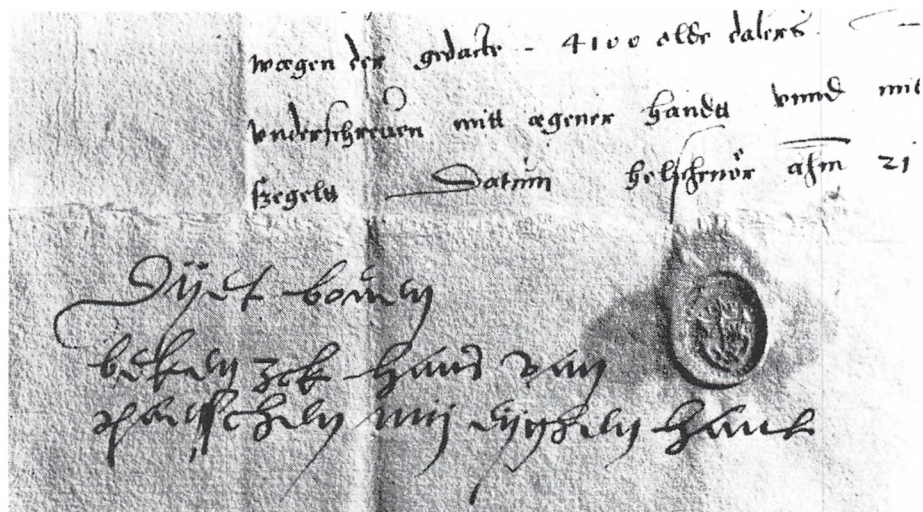 wægen der gedacte - 4100 olde dalers
vnderschreuen mitt ægener handtt vnnd mit
szegels Datum helschenör ahm 21
Dyet bouen
beken yck hans van
paesschen mij eijghen hant